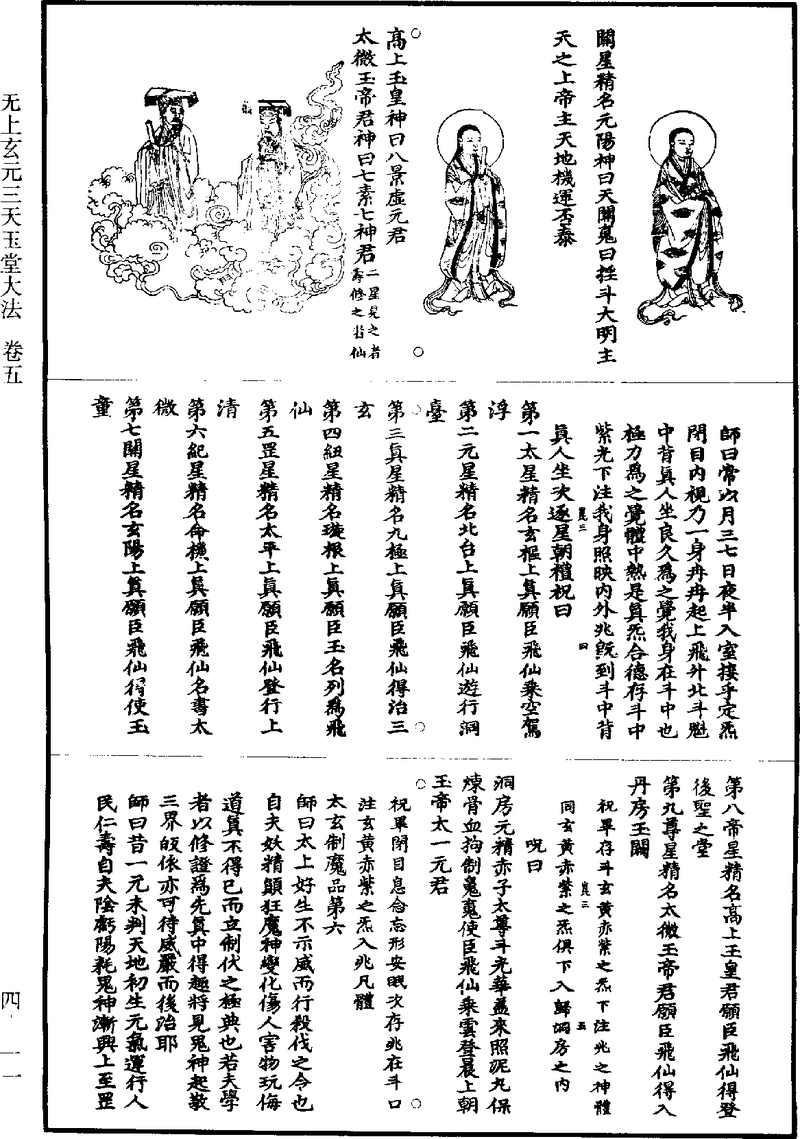 无上玄元三天玉堂大法　卷五
四·一一
關星精名元陽神曰天關䰟曰挃斗大明主
天之上帝主天地機運否泰
高上玉皇神曰八景虛元君
太微玉帝君神曰七素七神君二星見之者
壽修之昇仙
師曰常以月三七日夜半入室接手定炁
閉目內視乃一身冉冉起上飛外北斗魁
中背真人坐良久爲之覺我身在斗中也
極力爲之覺體中熱是真炁合德存斗中
紫光下注我身照映內外兆旣到斗中背
真人坐次逐星朝禮祝曰
第一太星精名玄樞上真願臣飛仙乘空駕
浮
第二元星精名北台上真願臣飛仙遊行洞
臺
第三真星精名九極上真願臣飛仙得治三
玄
第四紐星精名璇根上真願臣玉名列爲飛
仙
第五罡星精名太平上真願臣飛仙登行上
清
第六紀星精名命機上真願臣飛仙名書太
微
第七關星精名玄陽上真願臣飛仙得使玉
童
第八帝星精名高上玉皇君願臣飛仙得登
後聖之堂
第九尊星精名太微玉帝君願臣飛仙得入
丹房玉闕
祝畢存斗玄黄赤紫之炁下注兆之神體
同玄黄赤紫之炁俱下入歸洞房之內
呪曰
洞房元精赤子太尊斗光華蓋來照泥丸保
煉骨血拘制䰟䰟使臣飛仙乘雲登晨上朝
玉帝太一元君
祝畢閉目息念忘形安眠次存兆在斗口
注玄黄赤紫之炁入兆凡體
太玄制魔品第六
師曰太上好生不示威而行殺伐之令也
自夫妖精顛狂魔神變化傷人害物玩侮
道真不得已而立制伏之極典也若夫學
者以修證爲先真中得趣將見鬼神起敬
三界皈依亦可待威嚴而後治耶
師曰昔一元未判天地初生元氣運行人
民仁壽自夫陰虧陽耗鬼神漸興上至罡